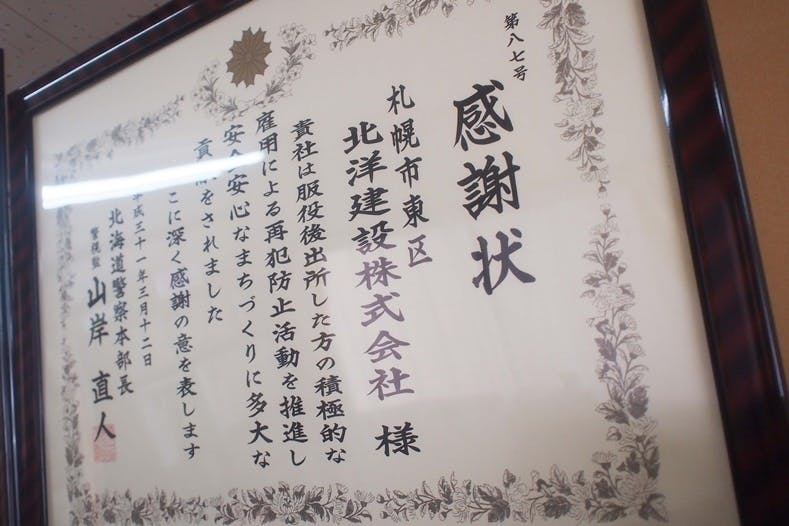 第八七号
感謝状
札幌市東区
北洋建設株式会社 様
貴社は服役後出所した方の積極的な
雇用による再犯防止活動を推進し
安全安心なまちづくりに多大な
貢をされました
こに深く感謝の意を表します
平成三十一年三月十二日
北海道警察本部長
警視監 山岸 直人